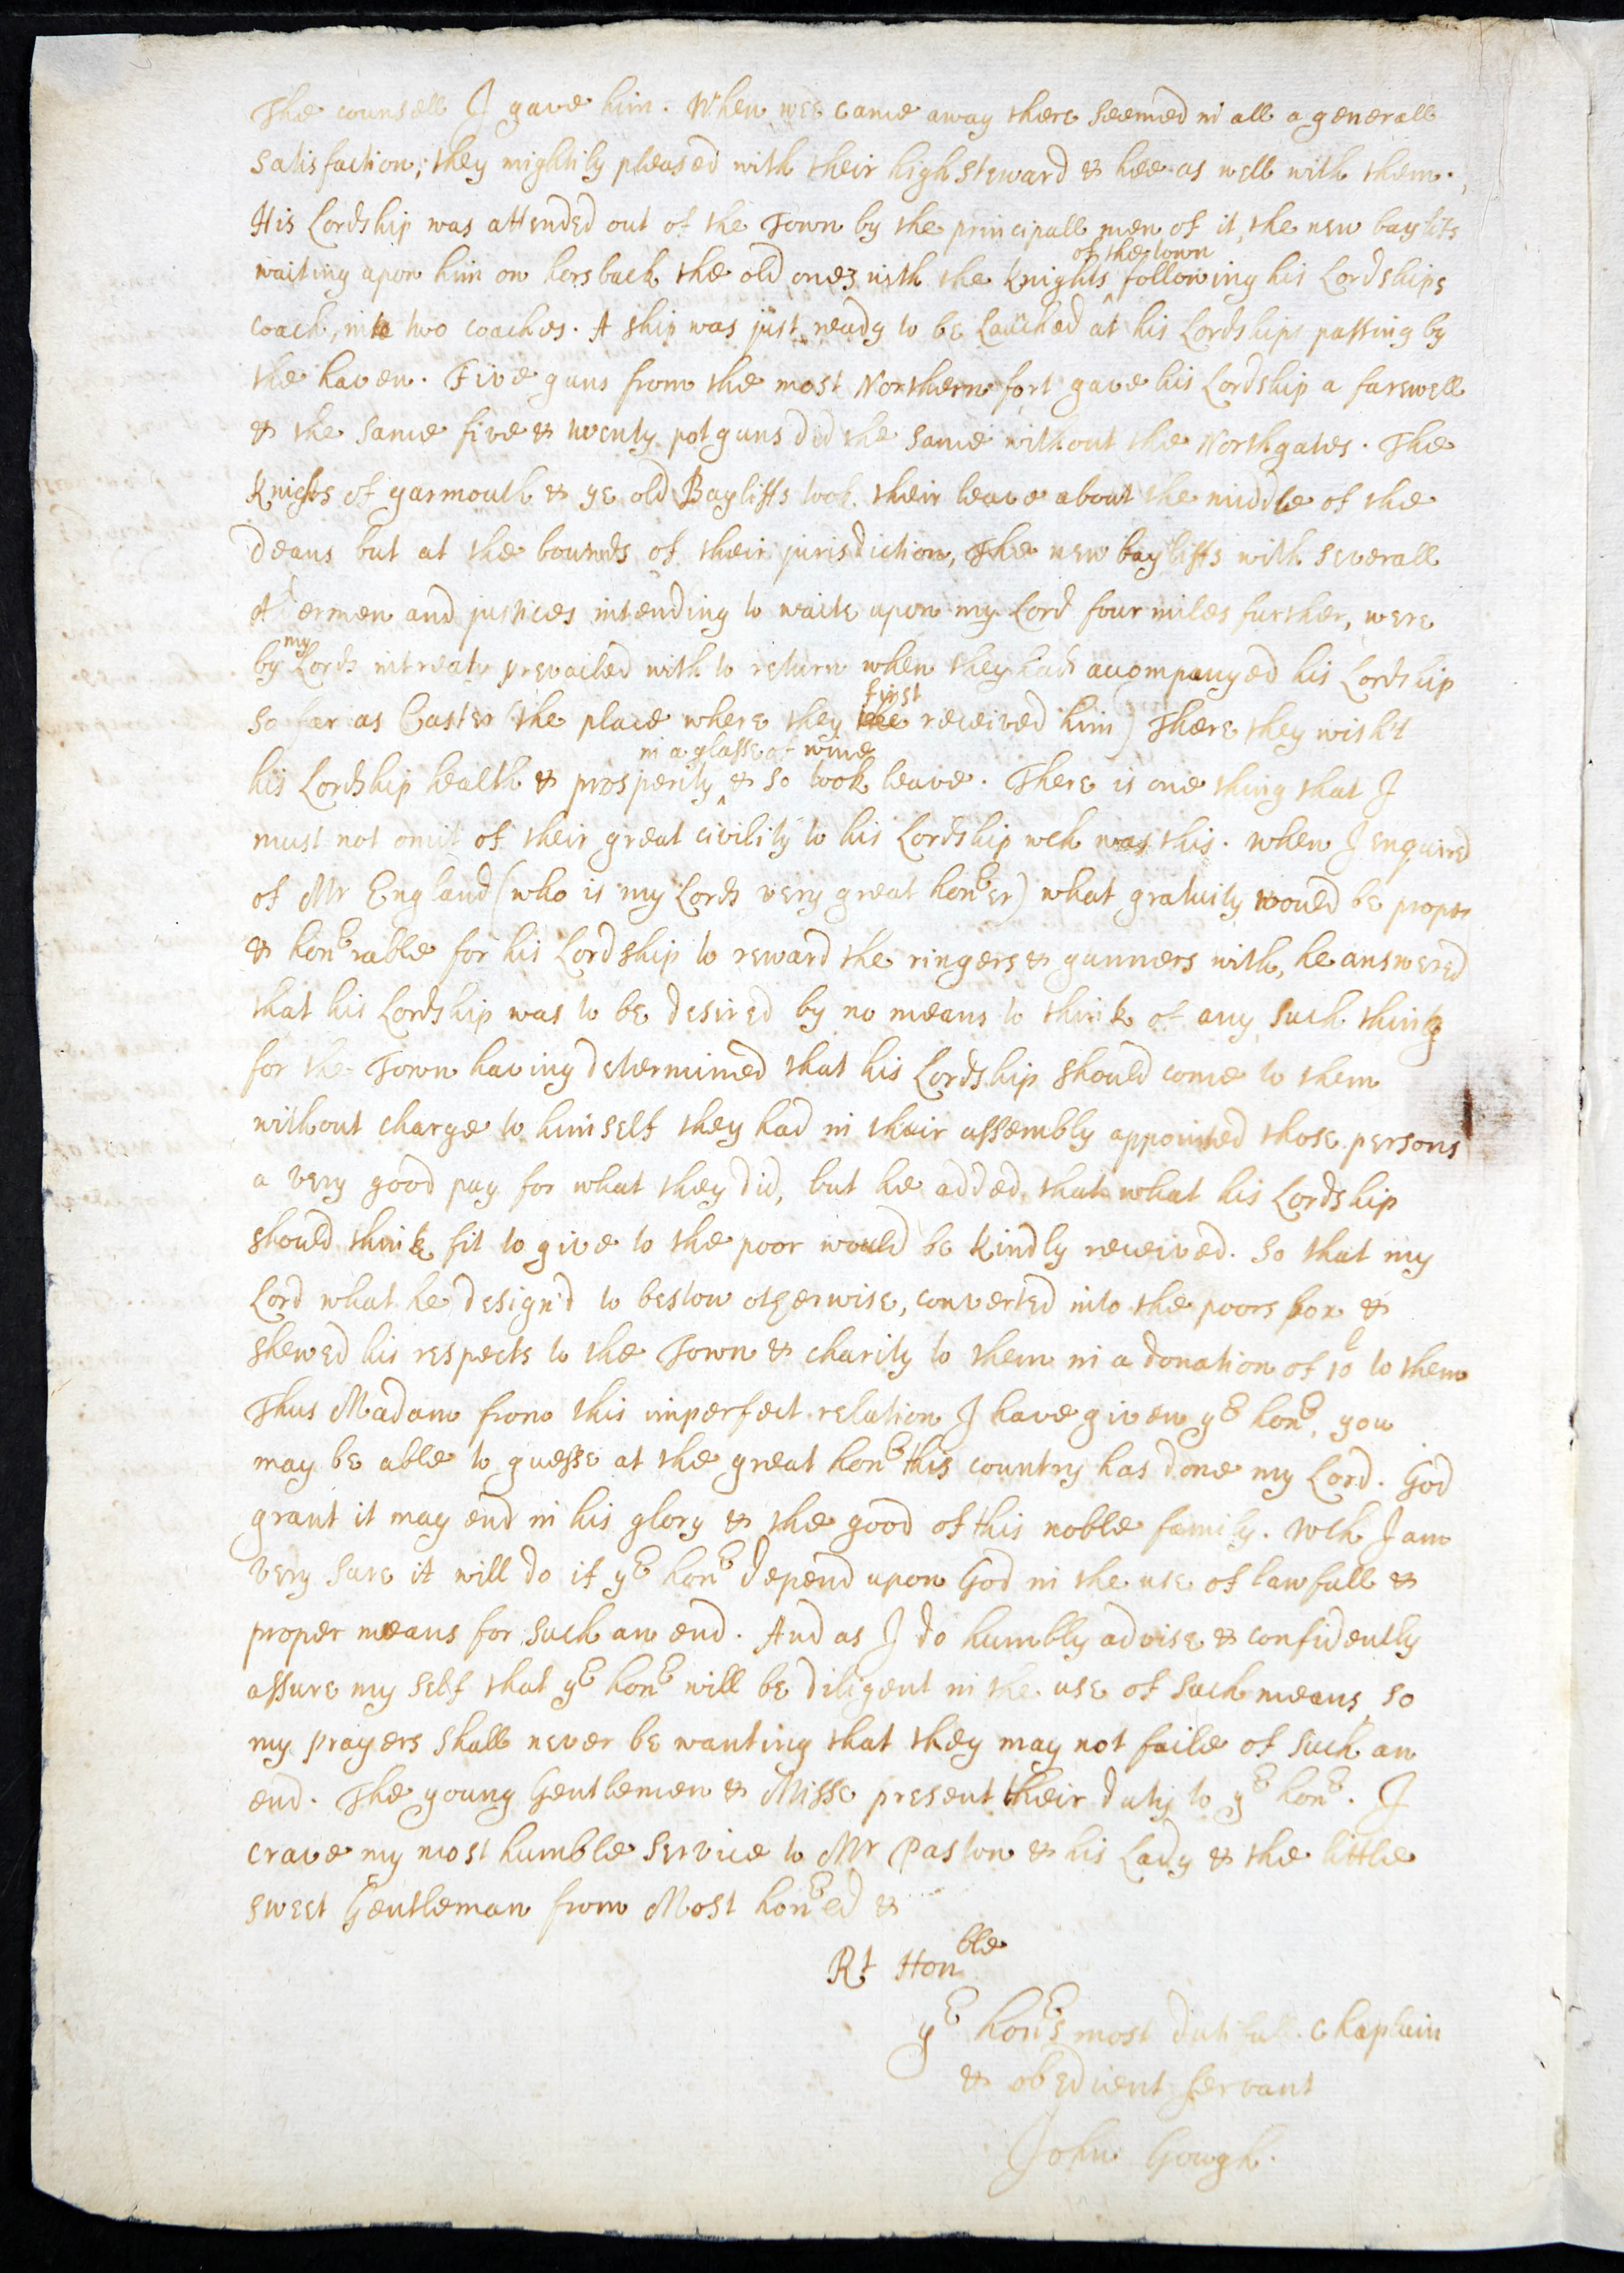 The counsell I gave him. When wee came away there seemed in all a generall
satisfaction; they mightily pleased with their high steward & hee as well with them.
His Lordship was attended out of the Town by the principall men of it, the new bayliffs
of the town
waiting upon him on horsback the old ones with the Knights ^ following his Lordships
coach, in two coaches. A ship was just ready to be Laūched at his Lordships passing by
the haven. Five guns from the most Northern fort gave his Lordship a farewell
& the same five & twenty potguns did the same without the Northgates. The
Knights of yarmouth & ye old Bayliffs took their leave about the middle of the
deans but at the bounds of their jurisdiction, The new bayliffs with severall
Aldermen and justices intending to waite upon my Lord four miles further, were
my
by Lords intreaty prevailed with to return when they had acompanyed his Lordship
first
so far as Caster (the place where they received him) There they wish't
in a glasse of wine
his Lordship health & prosperity ^ & so took leave. There is one thing that I
must not omit of their great civility to his Lordship wch was this. when I enquired
of Mr England (who is my Lords very great honrer) what gratuity would be proper
& honrable for his Lordship to reward the ringers & gunners with, he answered
that his Lordship was to be desired by no means to think of any such thing
for the Town having determined that his Lordship should come to them
without charge to himself they had in their assembly appointed those persons
a very good pay for what they did, but he added that what his Lordship
should think fit to give to the poor would be kindly received. So that my
Lord what he design'd to bestow otherwise, converted into the poors box &
shewed his respects to the Town & charity to them in a donation of 10l to them
Thus Madam from this imperfect relation I have given yr honr, you
may be able to guesse at the great honr this country has done my Lord. God
grant it may end in his glory & the good of this noble family. wch I am
very sure it will do if yr honr depend upon God in the use of lawfull &
proper means for such an end. And as I do humbly advise & confidently
assure my self that yr honr will be diligent in the use of such means, so
my prayers shall never be wanting that they may not faile of such an
end. The young Gentlemen & Misse present their duty to yr honr. I
crave my most humble service to Mr Paston & his Lady & the little
sweet Gentleman from Most honred &
Rt Honble
yr honrs most dutifull Chaplain
& obedient servant
John Gough.